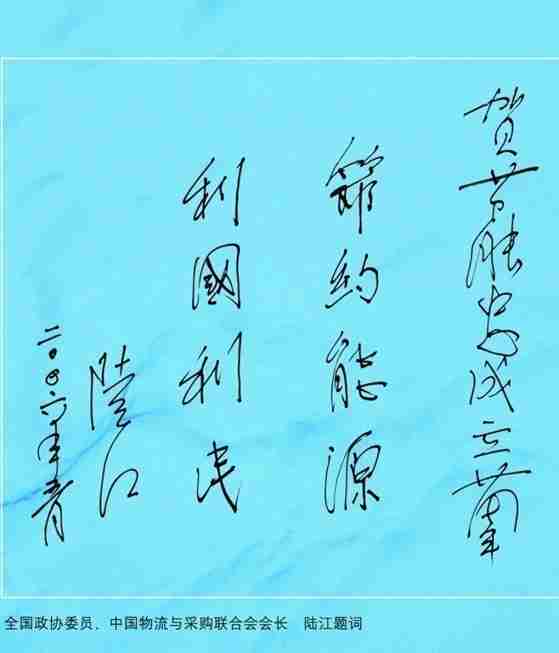 贺节能中心成立周年
節約能源
利國利民
陸江
二〇〇六年月
全国政协委员、中国物流与采购联合会会长　陆江题词